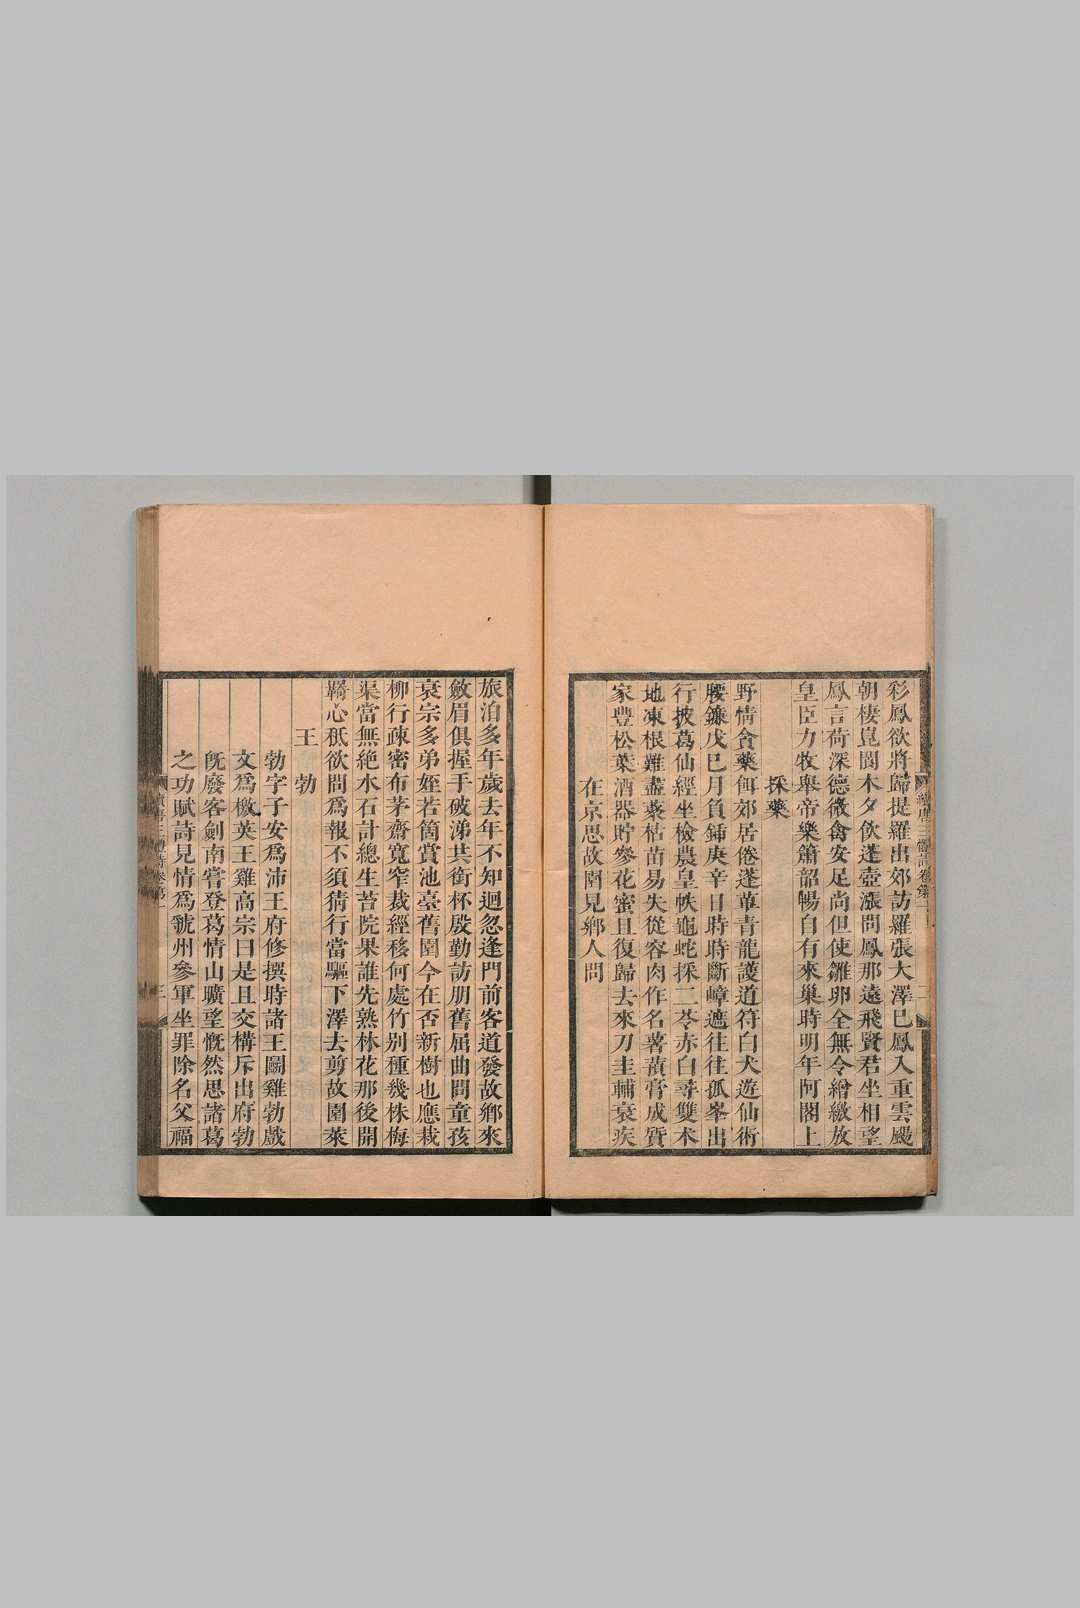 彩鳳欲將歸提羅出郊訪羅張大澤已鳳入重雲颺
朝棲崑閬木夕飲蓬壺漲問鳳那遠飛賢君坐相望
鳳言荷深德微禽安足尚但使雛卵全無令繒繳放
皇臣力牧舉帝樂簫韶暢自有來巢時明年阿閣上
採藥
野情貪藥餌郊居倦蓬蓽青龍護道符白犬遊仙術
腰鐮戊巳月負鍤庚辛日時時斷嶂遮往往孤峯出
行披葛仙經坐檢農皇帙龜蛇採二苓赤白尋雙术
地凍根難盡藂枯苗易失從容肉作名薯蕷膏成質
家豐松葉酒器貯參花蜜且復歸去來刀圭輔衰疾
在京思故園見鄉人問
續唐三體詩卷第一
旅泊多年歲去年不知迴忽逢門前客道發故鄉來
斂眉俱握手破涕共銜杯殷勤訪朋舊屈曲問童孩
衰宗多弟姪若箇賞池臺舊園今在否新樹也應栽
柳行疎密布茅齋寬窄裁經移何處竹别種幾株梅
渠當無絶水石計總生苔院果誰先熟林花那後開
羇心秖欲問爲報不須猜行當驅下澤去剪故園萊
王勃
勃字子安爲沛王府修撰時諸王鬬雞勃戲
文爲檄英王雞高宗曰是且交構斥出府勃
旣廢客劍南嘗登葛情山曠望慨然思諸葛
之功賦詩見情爲虢州參軍坐罪除名父福
續唐三體詩卷第一 三